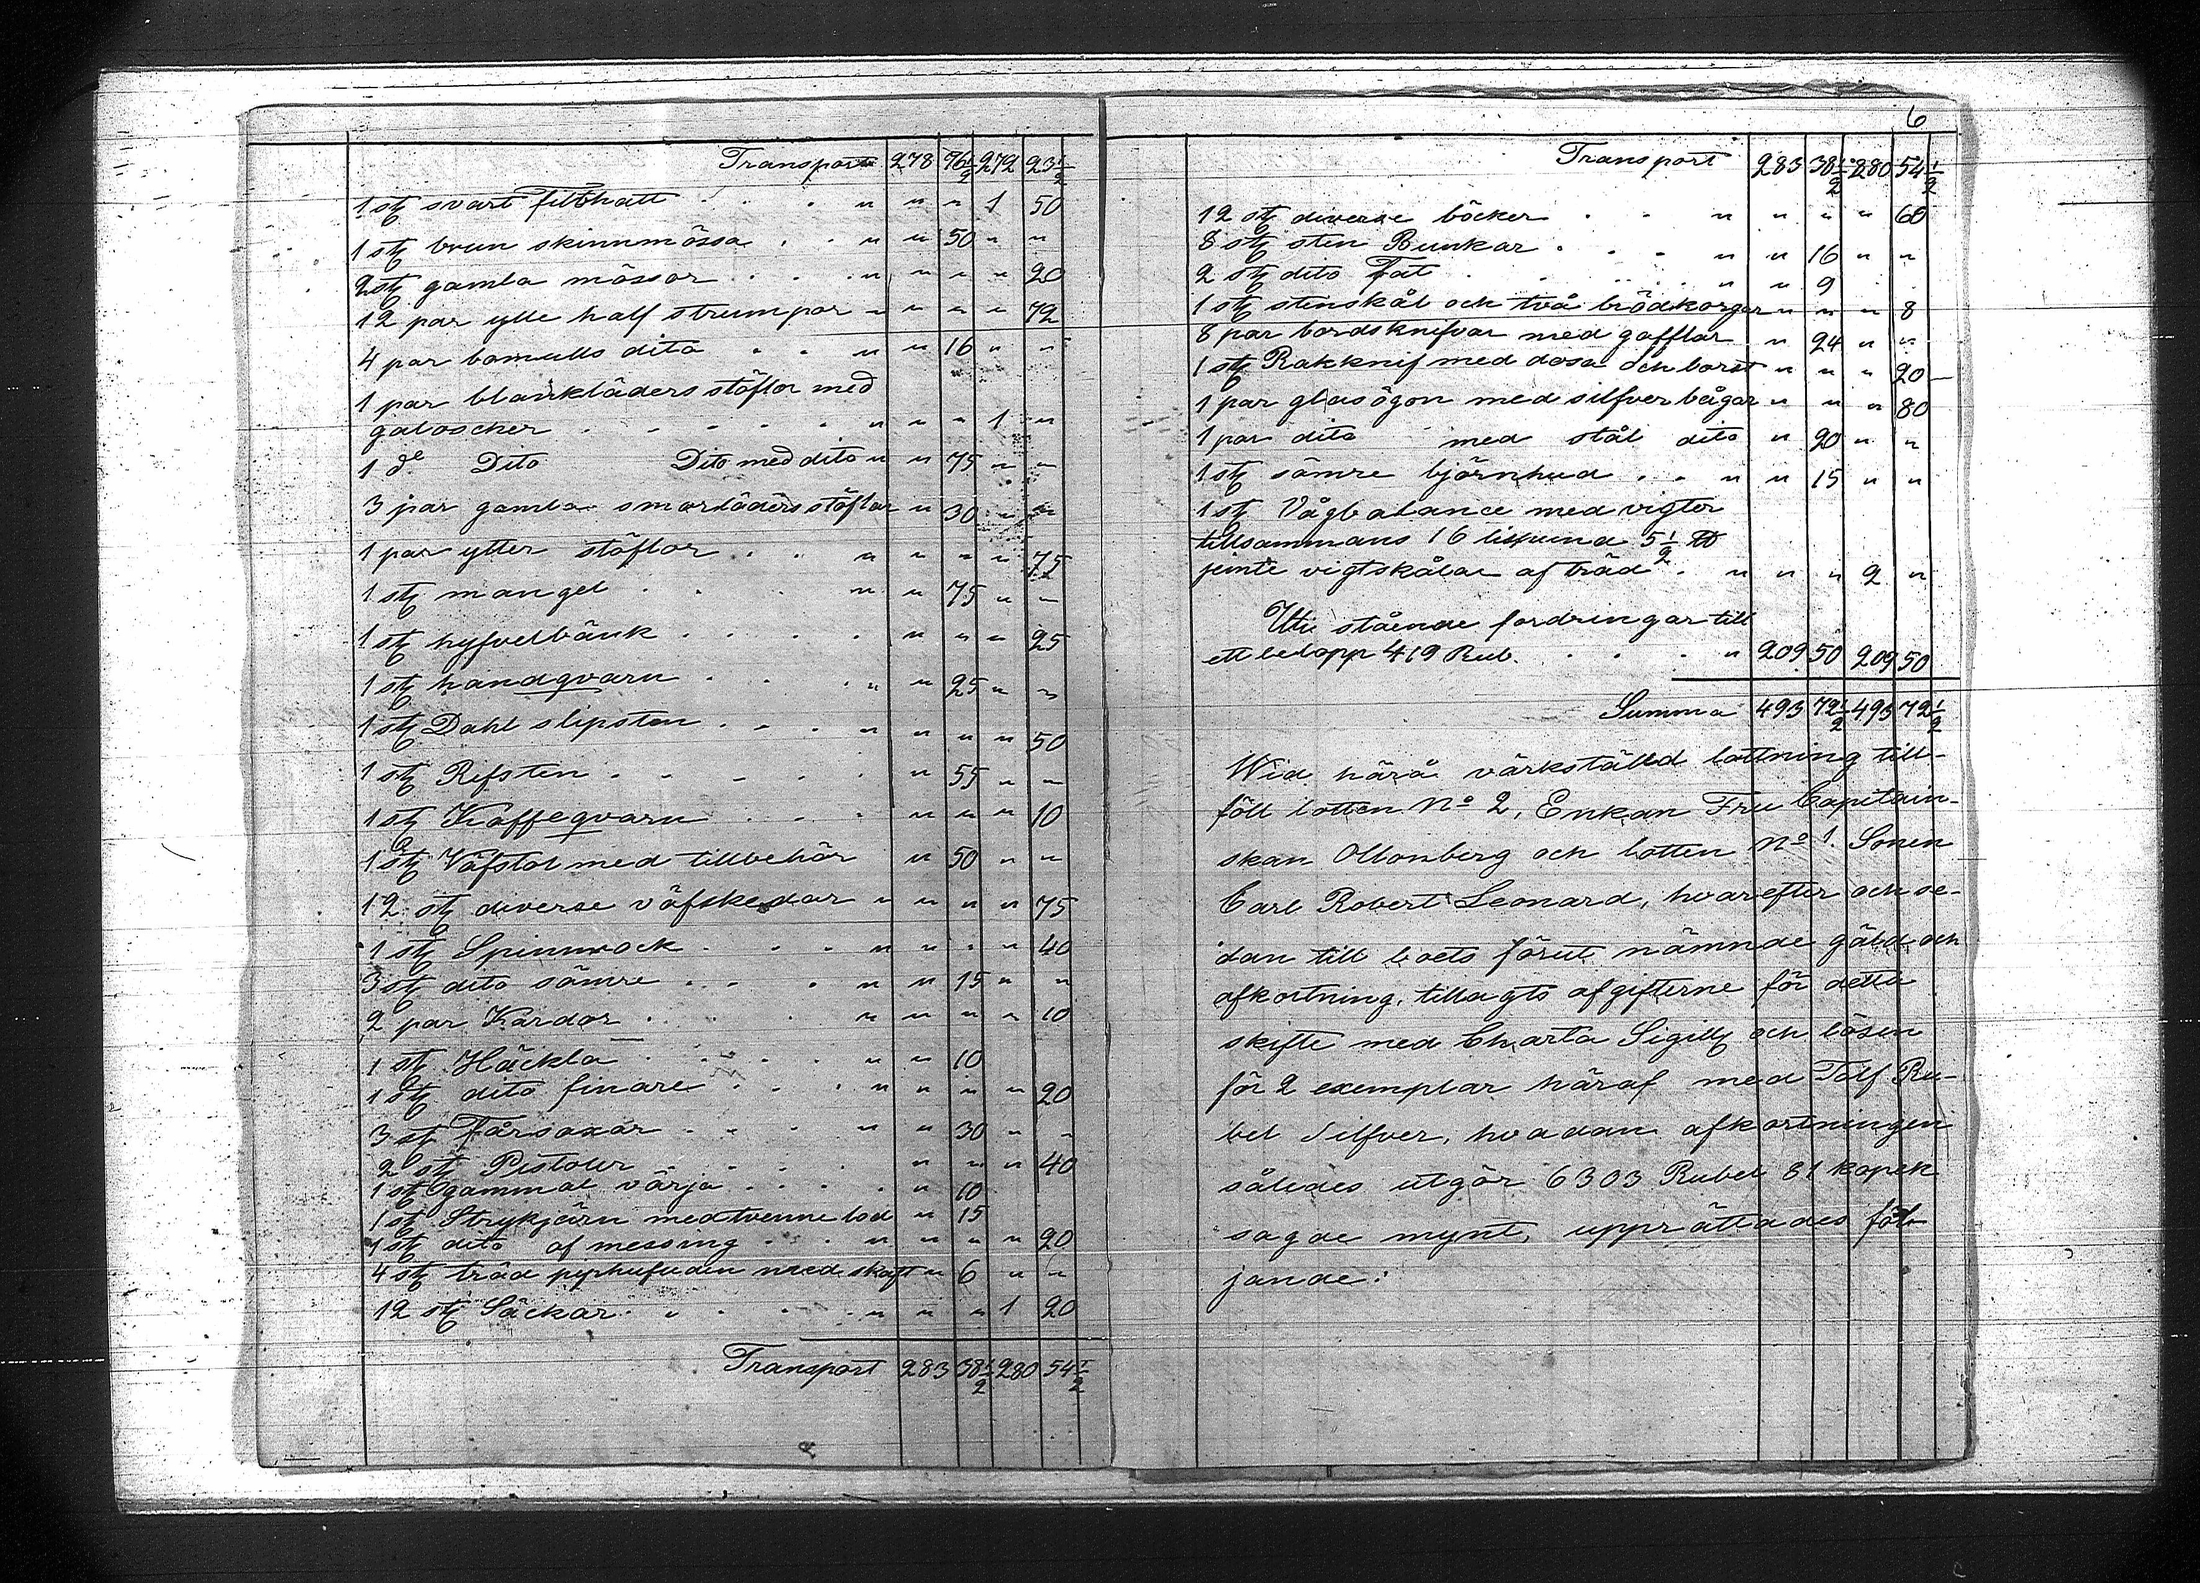 Transport 278 96½ 272 23½
1 st svart filthatt . . . " " " 1 50
1 st brun skinnmössa . . " " 50 " "
2 st gamla mössor . . . " " " " 20
12 par ylle half strumpor " " " " 72
4 par bomulls dito . . " " 16 " "
1 par blankläders stöflor med
galoscher . . . . . . " " " 1 "
1 d:o Dito Dito med dito " " 75 " "
3 par gamla smorläders stöflor " 30 " "
1 par ytter stöflor . . " " " " 75
1 st mangel . . . " " 75 " "
1 st hyfvelbänk . . . . " " " 25
1 st handqvarn . . . " " 25 " "
1 st Dahl slipsten . . . . " " " " 50
1 st Refsten . . . . . " 55 " "
1 st Kaffeqvarn . . . . " " " 10
1 st Väfstol med tillbehör " 50 " "
12 st diverse väfskedar " " " " 75
1 st Spinnrock . . . " " " " 40
3 st dito sämre . . . " " 15 " "
2 par Kardor . . . . " " " " 10
1 st Häckla . . . . " " 10
1 st dito finare . . . " " " " 20
3 st Fårsaxar . . . " " 30 " "
2 st Pistoler . . . . " " " 40
1 st gammal värja . . . . " 10
1 st Strykjärn med tvenne lod " 15
1 st dito af messing . . . " " " " 20
4 st träd med skaft " 6 " "
12 st Säckar . . . . " " " 1 20
Transport 283 38½ 280 54½
6
Transport 283 38½ 280 54½
12 st diverse böcker . . " " " " 60
8 st sten Bunkar . . . " " 16 " "
2 st dito Fat . . . . " " 9 . .
1 st stenskål och två brödkorgar " " " 8
8 par bordsknifvar med gafflar " 24 " "
1 st Rakknif med dosa och borst " " " 20
1 par glasögon med silfver bågar " " " 80
1 par dito med stål dito " 20 " "
1 st sämre björnhud . . " " 15 " "
1 st Vågbalance med vigter
tillsammans 16 lispund 5½ ℔
jemte vigtskålar af träd . " " " 2 "
Ute stående fordringar till
ett belopp 419 Rub. . . . " 209 50 209 50
Summa 493 72½ 493 72½
Wid härå värkställd lottning till-
föll lotten No 2, Enkan Fru Capitain-
skan Ollonberg och lotten No 1. Sonen
Carl Robert Leonard, hvarefter och se-
dan till boets förut nämnde gäld och
afkortning, tillagts afgifterne för detta
skifte med Charta Sigill och lösen
för 2 exemplar häraf med Tolf Ru-
bel Silfver, hvadan afkortningen
således utgör 6303 Rubel 81 kopek
sagde mynt, upprättades föl-
jande: